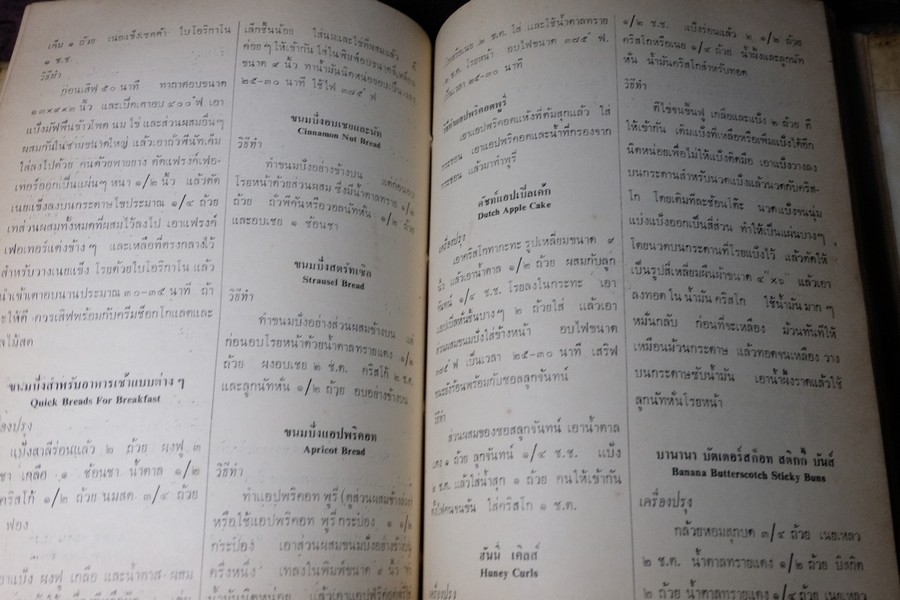 เค็ม ๑ ถ้วย เนยแข็งเชดด้า ใบโอริกาโน
๑ ช.ช.
วิธีทำ
ก่อนเสิฟ ๕๐ นาที ทาถาดอบขนาด
๑๓×๙×๓ นิ้ว และเปิดเตาอบ ๔๐๐ ํฟ. เอา
แป้งมัฟฟินข้าวโพด นม ไข่ และส่วนผสมอื่นๆ
ผสมกันในชามขนาดใหญ่ แล้วเอาถั่วพีนัท,เค็ม
ใส่ลงไปด้วย คนด้วยพายยาง ตัดแฟรงค์เฟอ-
เทอร์ออกเป็นแผ่นๆ หนา ๑/๒ นิ้ว แล้วตัด
เนยแข็งลงบนกระดาษไขประมาณ ๑/๔ ถ้วย
เทส่วนผสมทั้งหมดที่ผสมไว้ลงไป เอาแฟรงค์
เฟอเทอร์แต่งข้างๆ และเหลือที่ตรงกลางไว้
สำหรับวางเนยแข็ง โรยด้วยใบโอริกาโน แล้ว
นำเข้าเตาอบนานประมาณ ๓๐-๓๕ นาที ถ้า
จะให้ดี ควรเสิฟพร้อมกับครีมช็อกโกแลตและ
ผลไม้สด
ขนมปังสำหรับอาหารเช้าแบบต่าง ๆ
Quick Breads For Breakfast
เครื่องปรุง
แป้งสาลีร่อนแล้ว ๒ ถ้วย ผงฟู ๓
ช้อนชา เกลือ ๑ ช้อนชา น้ำตาล ๑/๒
คริสโก้ ๑/๒ ถ้วย นมสด ๓/๔ ถ้วย
ฟอง
เอาแป้ง ผงฟู เกลือ และน้ำตาล ผสม
เล็กชิ้นน้อย ใส่นมและไข่ตีผสมแล้ว
ค่อย ๆ ให้เข้ากัน ใส่ในพิมพ์
ขนาด ๙ นิ้ว ทาน้ำมันนิดหน่อย
๒๕-๓๐ นาที ใช้ไฟ ๓๗๕ ํฟ
ขนมปังอบเชยและนัท
Cinnamon Nut Bread
วิธีทำ
ทำขนมปังอย่างข้างบน แต่ก่อนเอา
โรยหน้าด้วยส่วนผสม ซึ่งมีน้ำตาลทราย ๑/๒
ถ้วย ถั่วพีกันหรือวอลนัทหั่น ๑/๒ ถ้วย
และอบเชย ๑ ช้อนชา
ขนมปังสตรัทเซิล
Strausel Bread
วิธีทำ
ทำขนมปังอย่างส่วนผสมข้างบน แต่
ก่อนอบโรยหน้าด้วยน้ำตาลทรายแดง ๑/๒
ถ้วย ผงอบเชย ๒ ช.ต. คริสโก้ ๒ ช.ต.
และลูกนัทหั่น ๑/๒ ถ้วย อบอย่างข้างบน
ขนมปังแอปพริคอท
Apricot Bread
วิธีทำ
ทำแอปพริคอท พูรี (ดูส่วนผสมข้างล่าง)
หรือใช้แอปพริคอท พูรี กระป๋อง ๑ ๑/๒
กระป๋อง เอาส่วนผสมขนมปังอย่างข้างบน
ครึ่งหนึ่ง เทลงในพิมพ์ขนาด ๙ นิ้ว ทา
น้ำมันนิดหน่อย แล้วเอาแอปพริคอท
๒ ช.ต. ใส่ และใช้น้ำตาลทราย
๒ ช.ต. โรยหน้า อบไฟขนาด ๓๗๕ ํ ฟ.
เป็นเวลา ๒๕-๓๐ นาที
วิธีทำแอปพริคอตพูรี่
เอาแอปพริคอตแห้งที่ต้มสุกแล้ว ใส่
กระชอน เอาแอปพริคอตและน้ำที่กรองจาก
กระชอน แล้วมาทำพูรี่
ดัชท์แอปเปิ้ลเค้ก
Dutch Apple Cake
เครื่องปรุง
เอาคริสโกทากะทะ รูปเหลี่ยมขนาด ๙
นิ้ว แล้วเอาน้ำตาล ๑/๒ ถ้วย ผสมกับลูก
จันทน์ ๑/๔ ช.ช. โรยลงในกระทะ เอา
แอปเปิลหั่นชิ้นบางๆ ๒ ถ้วยใส่ แล้วเอา
ส่วนผสมขนมปังใส่ข้างหน้า อบไฟขนาด
๓๗๕ ํฟ เป็นเวลา ๒๕-๓๐ นาที เสริฟ
ขณะยังร้อนพร้อมกับซอสลูกจันทน์
วิธีทำ
ส่วนผสมของซอสลูกจันทน์ เอาน้ำตาล
แดง ๑ ถ้วย ลูกจันทน์ ๑/๔ ช.ช. แป้ง
๒ ช.ต. แล้วใส่น้ำสุก ๑ ถ้วย คนให้เข้ากัน
ตั้งไฟคนจนข้น ใส่คริสโก ๑ ช.ต.
ฮันนี่ เคิลส์
Huney Curls
เครื่องปรุง
๑/๒ ช.ช. แป้งร่อนแล้ว ๒ ๑/๒ ถ้วย
คริสโกหรือเนย ๑/๔ ถ้วย น้ำผึ้งและลูกนัท
หั่น น้ำมันคริสโกสำหรับทอด
วิธีทำ
ตีไข่จนขึ้นฟู เกลือและแป้ง ๒ ถ้วย ตี
ให้เข้ากัน เติมแป้งที่เหลือหรือเพิ่มแป้งได้อีก
นิดหน่อยเพื่อไม่ให้แป้งติดมือ เอาแป้งวางลง
บนกระดานสำหรับนวดแป้งแล้วนวดกับคริส-
โก โดยเติมทีละช้อนโต๊ะ นวดแป้งจนนุ่ม
แบ่งแป้งออกเป็นสี่ส่วน ทำให้เป็นแผ่นบางๆ
โดยนวดบนกระดานที่โรยแป้งไว้ แล้วตัดให้
เป็นรูปสี่เหลี่ยมผืนผ้าขนาด ๔"×๖" แล้วเอา
ลงทอด ใน น้ำมัน คริสโก ใช้น้ำมัน มาก ๆ
หมั่นกลับ ก่อนที่จะเหลือง ม้วนทันทีให้
เหมือนม้วนกระดาษ แล้วทอดจนเหลือง วาง
บนกระดาษซับน้ำมัน เอาน้ำผึ้งราดแล้วใช้
ลูกนัทหั่นโรยหน้า
บานานา บัตเตอร์สก็อท สติกกี้ บันส์
Banana Butterscotch Sticky Buns
เครื่องปรุง
กล้วยหอมสุกบด ๓/๔ ถ้วย เนย,เหลว
๒ ช.ต. น้ำตาลทรายแดง ๑/๒ ถ้วย บิสกิต
๒ ถ้วย น้ำตาลทรายแดง ๑/๔ ถ้วย เนยเหลว